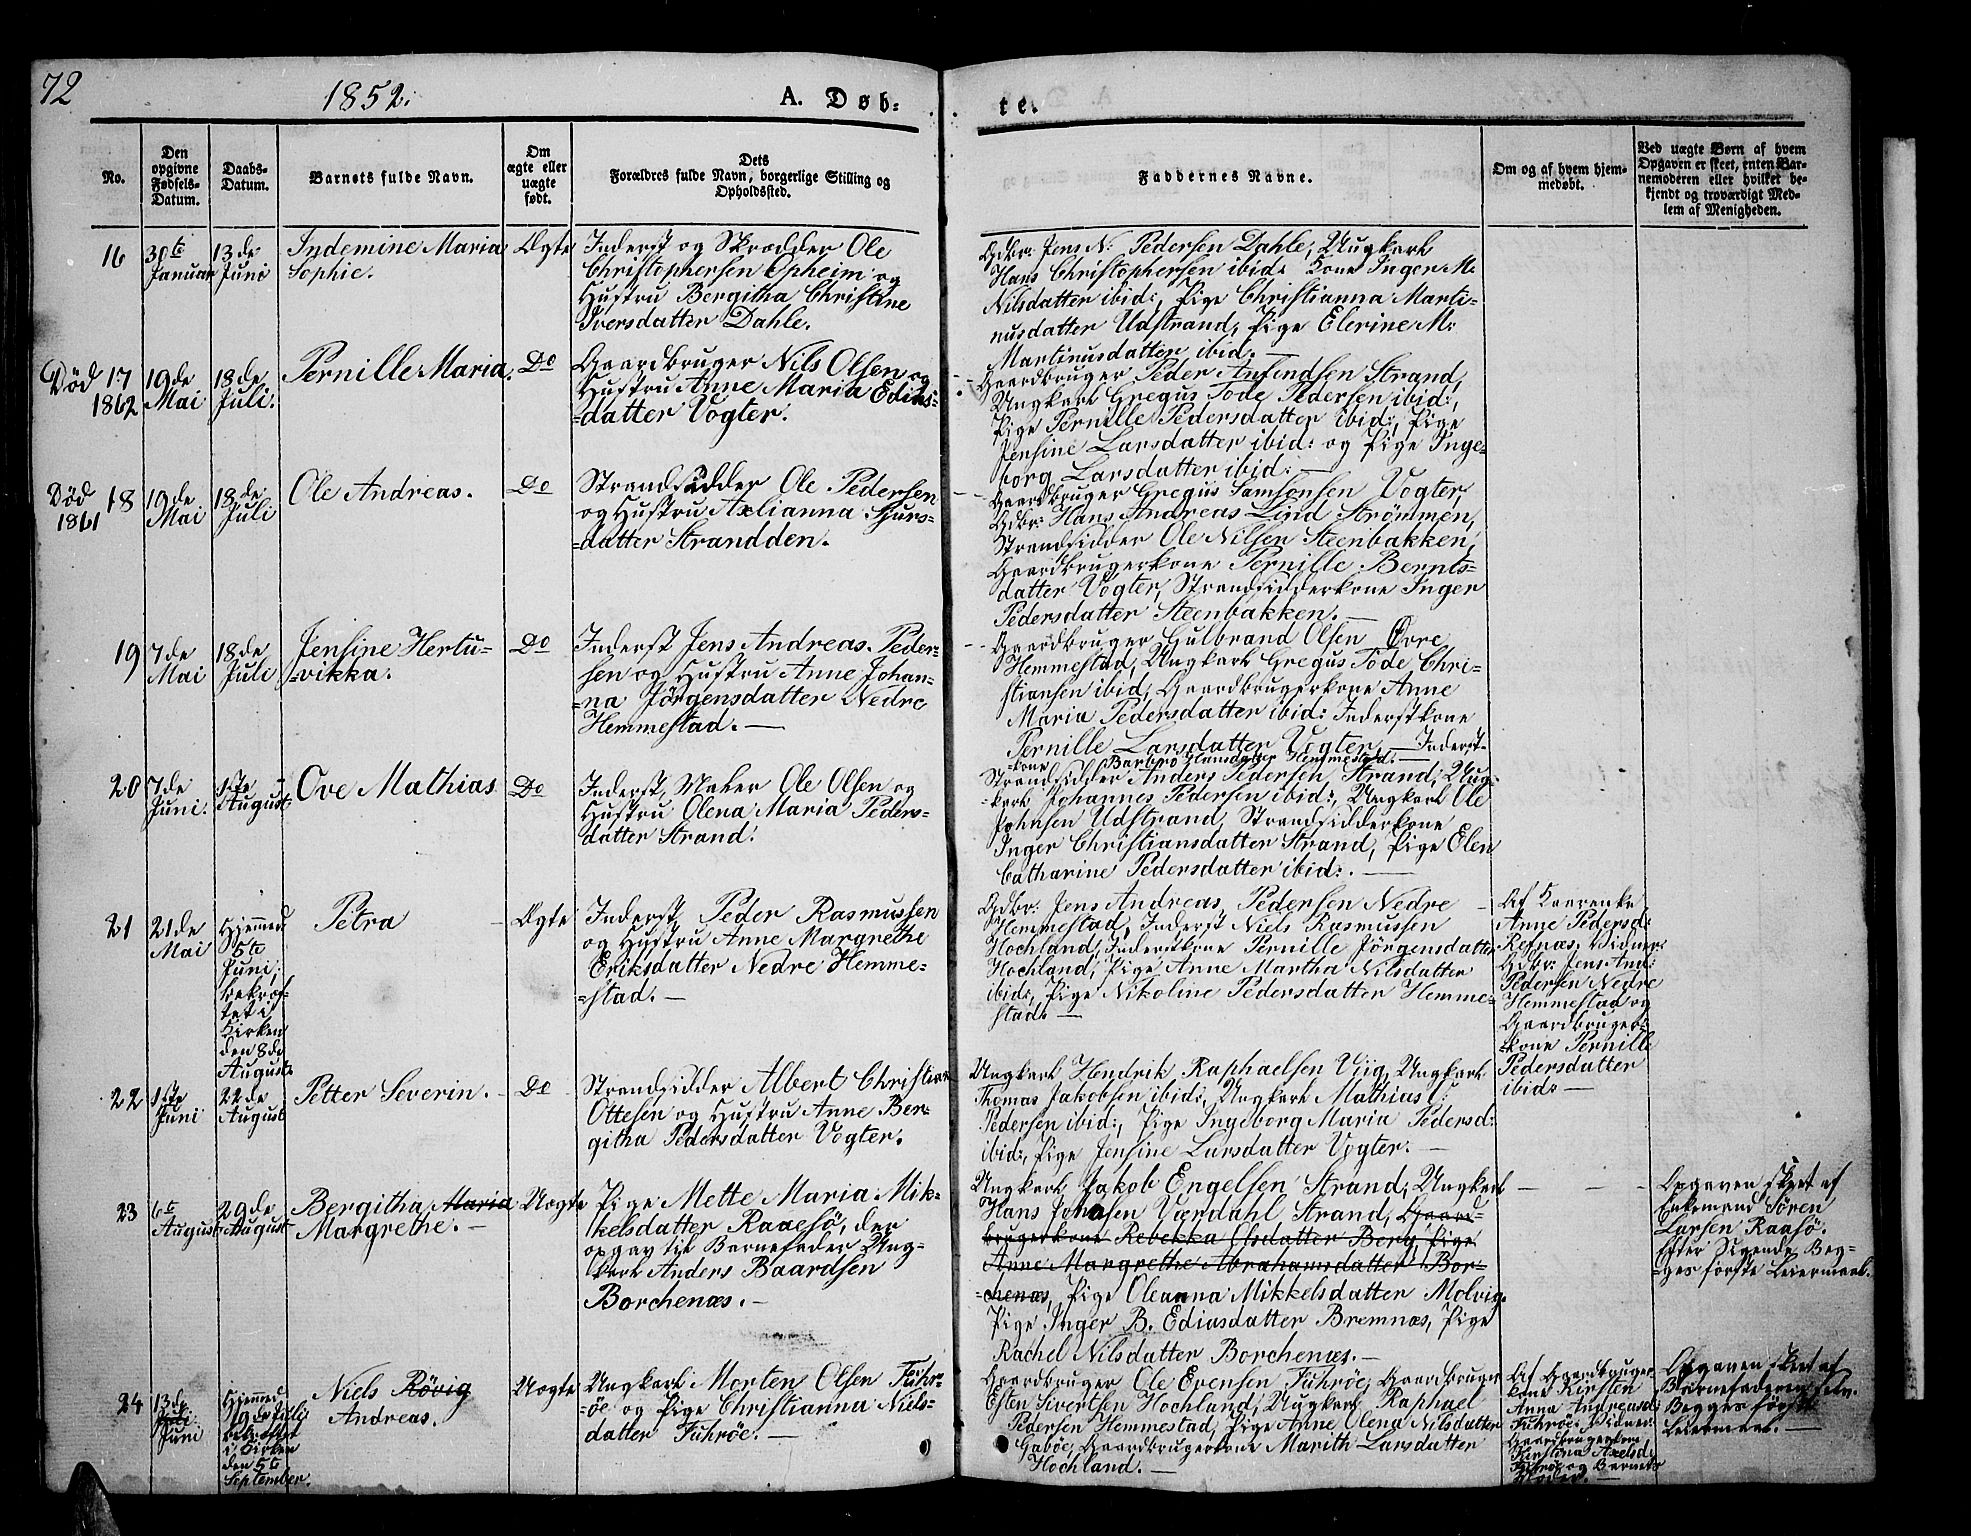 72
1852.
A. Døb-
te.
No.
Den
opgivne
Fødsels-
Datum.
Daabs-
Datum.
Barnets fulde Navn.
Om
ægte eller
uægte
født.
Dets
Forældres fulde Navn, borgerlige Stilling og
Opholdssted.
Faddernes Navne.
Om og af hvem hjem-
medøbt.
Ved uægte Børn af hvem
Opgaven er skeet, enten Bar-
nemoderen eller hvilket be-
kjendt og troværdigt Med-
lem af Menigheden.
16
30te
Januar
13de
Juni
Indemine Maria
Sophie.
Ægte
Inderst og Skrædder Ole
Christophersen Opheim og
Hustru Bergitha Christine
Iversdatter Dahle.
Gdbr: Jens N: Pedersen Dahle, Ungkarl
Hans Christophersen ibid: Kone Inger M:
Nilsdatter ibid:, Pige Christianna Marti-
nusdatter Udstrand, Pige Elerine M:
Martinusdatter ibid. —
Død 17
1862
19de
Mai
18de
Juli.
Pernille Maria.
Do
Gaardbruger Nils Olsen og
Hustru Anne Maria Edias-
=datter Vogter.
Gaardbruger Peder Anfindsen Strand,
Ungkarl Gregus Tode Pedersen ibid:,
Pige Pernille Pedersdatter ibid:, Pige
Jensine Larsdatter ibid: og Pige Inge-
borg Larsdatter ibid: —
Død 18
1861
19de
Mai
18de
Juli
Ole Andreas.
Do
Strandsidder Ole Pedersen
og Hustru Axlianna Sjurs-
=datter Strandden.
Gaardbruger Gregus Samsonsen Vogter,
Gdbr: Hans Andreas Lind Strømmen,
Strandsidder Ole Nilsen Steenbakken,
Gaardbrugerkone Pernille Bernts-
datter Vogter, Strandsidderkone Inger
Pedersdatter Steenbakken. —
19
7de
Mai
18de
Juli
Jensine Hertu-
=vikka.
Do
Inderst Jens Andreas Peder-
sen og Hustru Anne Johan-
=na Jørgensdatter Nedre
Hemmestad. —
Gaardbruger Gulbrand Olsen Øvre
Hemmestad, Ungkarl Gregus Tode Chri-
stiansen ibid, Gaardbrugerkone Anne
Maria Pedersdatter ibid: Inderstkone
Pernille Larsdatter Vogter, — Inderst-
kone Barbro Hansdatter Hemmestad. —
20
7de
Juni.
1ste
August
Ove Mathias
Do
Inderst, Maler Ole Olsen og
Hustru Olena Maria Peders-
datter Strand.
Strandsidder Anders Pedersen Strand, Ung-
karl Johannes Pedersen ibid:, Ungkarl Ole
Johnsen Udstrand, Strandsidderkone
Inger Christiansdatter Strand, Pige Elen
Catharine Pedersdatter ibid:. —
21
21de
Mai
Hjemmed
5te
Juni,
bekræf-
tet i
Kirken
den 8de
August
Petra
Ægte
Inderst, Peder Rasmussen
og Hustru Anne Margrethe
Eriksdatter Nedre Hemme-
=stad. —
Gdbr: Jens Andreas Pedersen Nedre
Hemmestad, Inderst Niels Rasmussen
Hochland, Inderstkone Pernille Jörgensdatter
Hochland, Pige Anne Martha Nilsdatter
ibid:, Pige Nikoline Pedersdatter Hemme-
stad. —
Af Kaarenke
Anne Pedersd:
Refnæs; Vidner:
Gdbr: Jens And:
Pedersen Nedre
Hemmestad og
Gaardbruger-
=kone Pernille
Pedersdatter
ibid: —
22
1ste
Juni
22de
August
Petter Severin.
Do
Strandsidder Albert Christian
Ottesen og Hustru Anne Ber-
githa Pedersdatter Vogter.
Ungkarl Hendrik Raphaelsen Viig, Ungkarl
Thomas Jakobsen ibid:, Ungkarl Mathias C:
Pedersen ibid:, Pige Ingeborg Maria Pedersd:
ibid:, Pige Jensine Larsdatter Vogter. —
23
6te
August
29de
August
Bergitha Maria
Margrethe. —
Uægte
Pige Mette Maria Mik-
kelsdatter Raaesö, der
opgav til Barnefader Ung-
karl Anders Baardsen
Borchenæs. —
Ungkarl Jakob Engelsen Strand, Ungkarl
Hans Johnsen Værdahl Strand, Gaard-
brugerkone Rebekka Olsdatter Berg, Pige
Anne Margrethe Abrahamsdatter Bor-
=chenæs, Pige Oleanna Mikkelsdatter Molvig.
Pige Inger B. Ediasdatter Bremnæs, Pige
Rachel Nilsdatter Borchenæs. —
Opgaven skeet af
Enkemand Sören
Larsen Raasö.
Efter Sigende Beg-
=ges første Leiermaal.
24
13de
Juli
Juni
Hjemmed
19de Juli
bekræftet
i Kirken
den 5te
September.
Niels Rövig
Andreas.
Uægte
Ungkarl Morten Olsen Fuhr-
=öe og Pige Christianna Niels-
datter Fuhröe. —
Gaardbruger Ole Evensen Fuhröe, Gaardbruger
Esten Sivertsen Hochland, Ungkarl Raphael
Pedersen Hemmestad, Pige Anne Olena Nilsdatter
Gaböe, Gaardbrugerkone Marith Larsdatter
Hochland. —
Af Gaardbruger-
kone Kirsten
Anna Andreasd:
Fuhröe; Vidner:
Gaardbrugerkone
Kirstina Axelsd:
Fuhröe og Barnets
Moder. —
Opgaven skeet af
Barnefaderen selv.
Begges første
Leiermaal. —